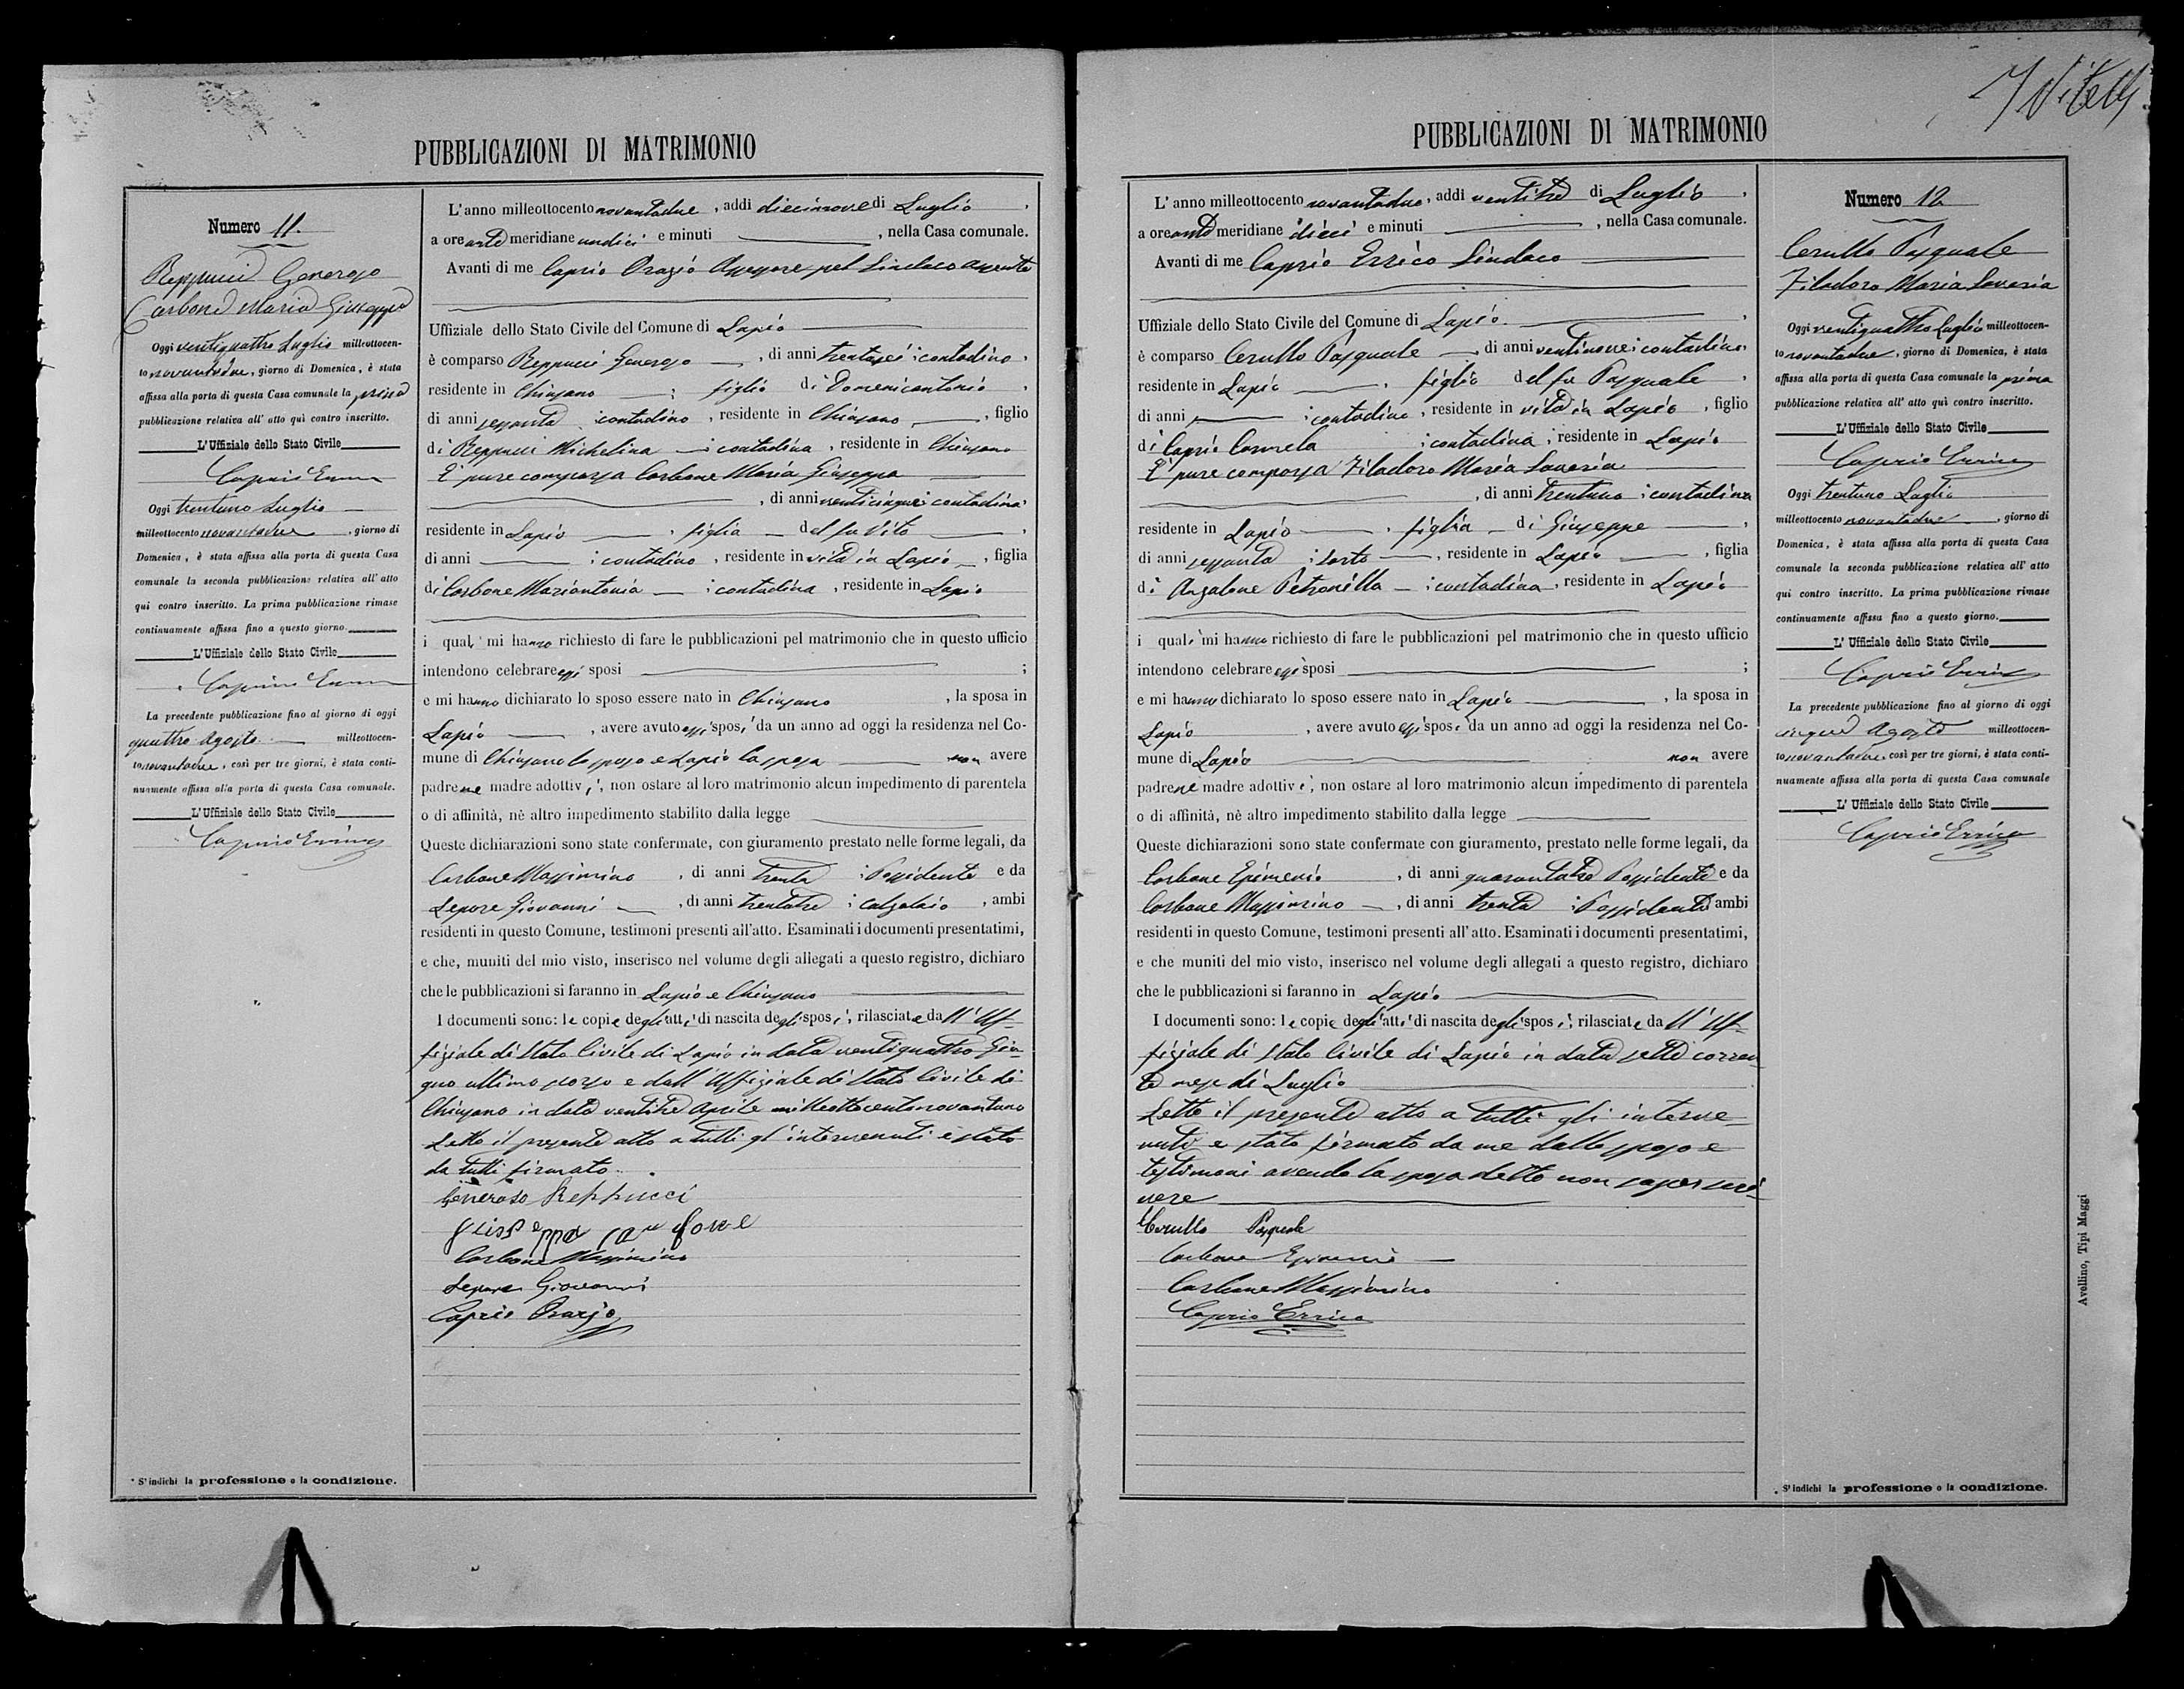 PUBBLICAZIONI DI MATRIMONIO
Numero 11.
Reppucci Generoso
Carbone Maria Giuseppa
Oggi ventiquattro Luglio milleottocen-
to novantadue, giorno di Domenica, è stata
affissa alla porta di questa Casa comunale la prima
pubblicazione relativa all' atto quì contro inscritto.
L'Uffiziale dello Stato Civile
Caprio Errico
Oggi trentuno Luglio
milleottocento novantadue, giorno di
Domenica, è stata affissa alla porta di questa Casa
comunale la seconda pubblicazione relativa all' atto
quì contro inscritto. La prima pubblicazione rimase
continuamente affissa fino a questo giorno.
L'Uffiziale dello Stato Civile
Caprio Errico
La precedente pubblicazione fino al giorno di oggi
quattro Agosto milleottocen-
to novantadue, così per tre giorni, è stata conti-
nuamente affissa alla porta di questa Casa comunale.
L'Uffiziale dello Stato Civile
Caprio Errico
* S'indichi la professione o la condizione.
L'anno milleottocento novantadue, addì diecinove di Luglio,
a ore anti meridiane undici e minuti , nella Casa comunale.
Avanti di me Caprio Orazio Assessore pel Sindaco assente
Uffiziale dello Stato Civile del Comune di Lapio
è comparso Reppucci Generoso, di anni trentasei contadino,
residente in Chiusano, figlio di Domenicantonio,
di anni sessanta contadino, residente in Chiusano, figlio
di Reppucci Michelina contadina, residente in Chiusano
E' pure comparsa Carbone Maria Giuseppa
, di anni venticinque contadina
residente in Lapio, figlia del fu Vito
di anni contadino, residente in vita in Lapio, figlia
di Carbone Mariantonia contadina, residente in Lapio
i quali mi hanno richiesto di fare le pubblicazioni pel matrimonio che in questo ufficio
intendono celebrare essi sposi ;
e mi hanno dichiarato lo sposo essere nato in Chiusano, la sposa in
Lapio, avere avuto essi sposi da un anno ad oggi la residenza nel Co-
mune di Chiusano lo sposo e Lapio la sposa non avere
padre ne madre adottivi, non ostare al loro matrimonio alcun impedimento di parentela
o di affinità, nè altro impedimento stabilito dalla legge
Queste dichiarazioni sono state confermate, con giuramento prestato nelle forme legali, da
Carbone Massimino, di anni trenta Possidente e da
Lepore Giovanni, di anni trentatre calzolaio, ambi
residenti in questo Comune, testimoni presenti all'atto. Esaminati i documenti presentatimi,
e che, muniti del mio visto, inserisco nel volume degli allegati a questo registro, dichiaro
che le pubblicazioni si faranno in Lapio e Chiusano
I documenti sono: le copie degli atti di nascita degli sposi, rilasciate da ll' Uf-
fiziale di Stato Civile di Lapio in data ventiquattro Giu-
gno ultimo scorso e dall' Uffiziale di Stato Civile di
Chiusano in data ventitre Aprile milleottocentonovantuno
Letto il presente atto a tutti gl' intervenuti è stato
da tutti firmato.
Generoso Reppucci
Giuseppa Carbone
Carbone Massimino
Lepore Giovanni
Caprio Orazio
PUBBLICAZIONI DI MATRIMONIO
L'anno milleottocento novantadue, addì ventitre di Luglio,
a ore anti meridiane dieci e minuti , nella Casa comunale.
Avanti di me Caprio Errico Sindaco
Uffiziale dello Stato Civile del Comune di Lapio.
è comparso Cerullo Pasquale, di anni ventinove contadino,
residente in Lapio, figlio del fu Pasquale,
di anni contadino, residente in vita in Lapio, figlio
di Caprio Carmela contadina, residente in Lapio
E' pure comparsa Filadoro Maria Saveria
, di anni trentuno contadina
residente in Lapio, figlia di Giuseppe,
di anni sessanta sarto, residente in Lapio, figlia
di Anzalone Petronilla contadina, residente in Lapio
i quali mi hanno richiesto di fare le pubblicazioni pel matrimonio che in questo ufficio
intendono celebrare essi sposi ;
e mi hanno dichiarato lo sposo essere nato in Lapio, la sposa in
Lapio, avere avuto essi sposi da un anno ad oggi la residenza nel Co-
mune di Lapio non avere
padre ne madre adottivi, non ostare al loro matrimonio alcun impedimento di parentela
o di affinità, nè altro impedimento stabilito dalla legge
Queste dichiarazioni sono state confermate con giuramento, prestato nelle forme legali, da
Carbone Epimenio, di anni quarantatre Possidente e da
Carbone Massimino, di anni trenta Possidente ambi
residenti in questo Comune, testimoni presenti all' atto. Esaminati i documenti presentatimi,
e che muniti del mio visto, inserisco nel volume degli allegati a questo registro, dichiaro
che le pubblicazioni si faranno in Lapio
I documenti sono: le copie degli atti di nascita degli sposi, rilasciate da ll' Uf-
fiziale di Stato Civile di Lapio in data sette corren-
te mese di Luglio
Letto il presente atto a tutti gli interve-
nuti e stato firmato da me dallo sposo e
testimoni avendo la sposa detto non saper scri-
vere
Cerullo Pasquale
Carbone Epimenio
Carbone Massimino
Caprio Errico
Numero 12
Cerullo Pasquale
Filadoro Maria Saveria
Oggi ventiquattro Luglio milleottocen-
to novantadue, giorno di Domenica, è stata
affissa alla porta di questa Casa comunale la prima
pubblicazione relativa all' atto quì contro inscritto.
L'Uffiziale dello Stato Civile
Caprio Errico
Oggi trentuno Luglio
milleottocento novantadue, giorno di
Domenica, è stata affissa alla porta di questa Casa
comunale la seconda pubblicazione relativa all' atto
quì contro inscritto. La prima pubblicazione rimase
continuamente affissa fino a questo giorno.
L' Uffiziale dello Stato Civile
Caprio Errico
La precedente pubblicazione fino al giorno di oggi
cinque Agosto milleottocen-
to novantadue, così per tre giorni, è stata conti-
nuamente affissa alla porta di questa Casa comunale
L' Uffiziale dello Stato Civile
Caprio Errico
* S'indichi la professione o la condizione.
Avellino, Tipi Maggi